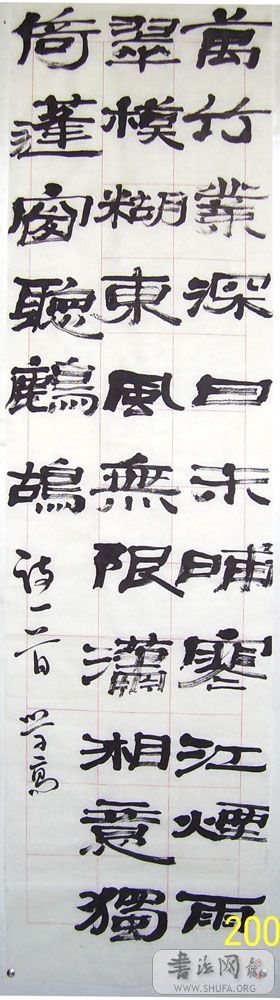 萬竹叢深日未晡寒江煙雨
翠模糊東風無限瀟湘意獨
倚蓬窗聽鷓鴣
詩一首
200
书法网
WWW.SHUFA.ORG